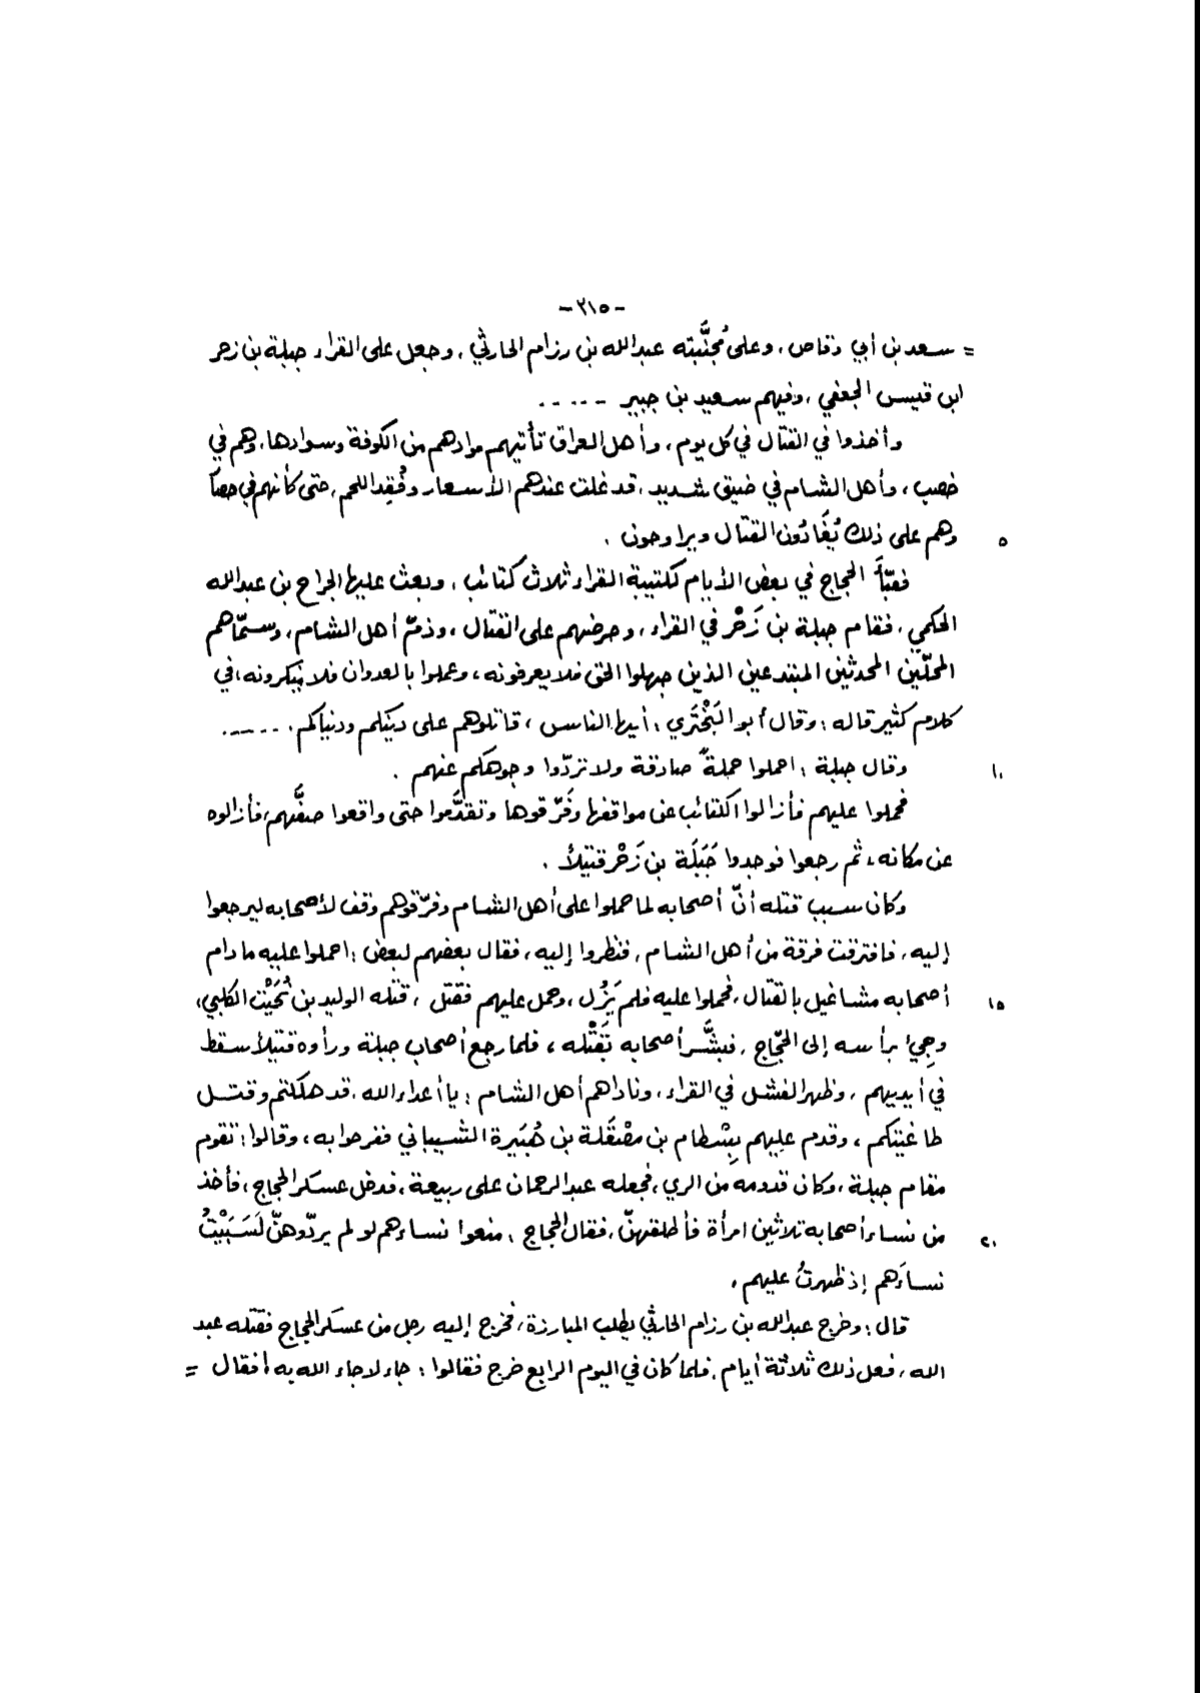 -٢١٥-
= سعد بن أبي وقاص، وعلى مُجنَّبته عبدالله بن رزام الحارثي، وجعل على القراء جبلة بن زحر
ابن قيس الجعفي، وفيهم سعيد بن جبير -----
وأخذوا في القتال في كل يوم، وأهل العراق تأتيهم موادهم من الكوفة وسوادها، وهم في
خصب، وأهل الشام في ضيق شديد، قد غلت عندهم الأسعار وفُقِد اللحم، حتى كأنهم في حصار
٥ وهم على ذلك يُغَادُون القتال ويراوحون .
فعبّأ الحجاج في بعض الأيام لكتيبة القراء ثلاث كتائب، وبعث عليها الجراح بن عبدالله
الحكمي، فقام جبلة بن زَحْر في القراء، وحرضهم على القتال، وذمّ أهل الشام، وسمّاهم
المحلّين المحدثين المبتدعين الذين جهلوا الحق فلا يعرفونه، وعملوا بالعدوان فلا ينكرونه، في
كلام كثير قاله : وقال أبو البَخْتَري : أيها الناس ، قاتلوهم على دينكم ودنياكم . -----
١٠ وقال جبلة : احملوا حملةً صادقة ولا تردّوا وجوهكم عنهم .
فحملوا عليهم فأزالوا الكتائب عن مواقفها وفَرّقوها وتقدَّموا حتى واقعوا صفَّهم، فأزالوه
عن مكانه، ثم رجعوا فوجدوا جَبَلَة بن زَحْر قتيلاً .
وكان سبب قتله أنّ أصحابه لما حملوا على أهل الشام وفرّقوهم وقف لأصحابه ليرجعوا
إليه، فافترقت فرقة من أهل الشام، فنظروا إليه، فقال بعضهم لبعض : احملوا عليه مادام
١٥ أصحابه مشاغيل بالقتال، فحملوا عليه فلم يَزُل، وحمل عليهم فقتل ، قتله الوليد بن نُحَيْت الكلبي،
وجِيءَ برأسه إلى الحجّاج، فبشَّر أصحابه بَقَتْله ، فلما رجع أصحاب جبلة ورأوه قتيلاً سقط
في أيديهم، وظهر الفشل في القراء، وناداهم أهل الشام : يا أعداء الله، قد هلكتم وقتل
طاغيتكم ، وقدم عليهم بِسْطام بن مصْقَلة بن هُبَيرة الشيباني ففرحوا به، وقالوا : تقوم
مقام جبلة، وكان قدومه من الري، فجعله عبدالرحمان على ربيعة، فدخل عسكر الحجاج، فأخذ
٢٠ من نساء أصحابه ثلاثين امرأة فأطلقهنّ، فقال الحجاج : منعوا نساءهم لو لم يردّوهنّ لَسَبَيْتُ
نساءَهم إذ ظهرتُ عليهم .
قال : وخرج عبدالله بن رزام الحارثي يطلب المبارزة، فخرج إليه رجل من عسكر الحجاج فقتله عبد
الله، فعل ذلك ثلاثة أيام، فلما كان في اليوم الرابع خرج فقالوا : جاء لا جاء الله به ! فقال =